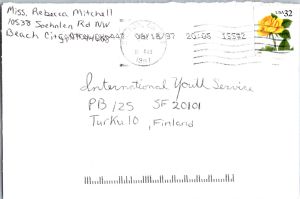 Miss. Rebecca Mitchell
10538 Soehnlen Rd NW
Beach City,
08/18/97 20:05
USA 32
International Youth Service
PB 125 SF 20101
Turku 10, Finland